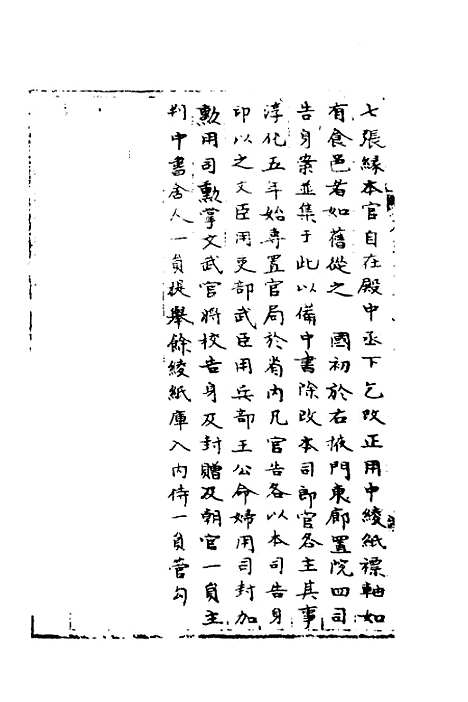 七張緣本官自在殿中丞下乞改正用中綾紙褾軸如
有食邑若如舊從之　國初於右掖門東廊置院四司
告身案並集于此以備中書除改本司郎官各主其事
淳化五年始專置官局於省內凡官告各以本司告身
印以之文臣用吏部武臣用兵部王公命婦用司封加
勲用司勲掌文武官將校告身及封贈及朝官一員主
判中書舍人一員提舉餘綾紙庫入內侍一員管勾